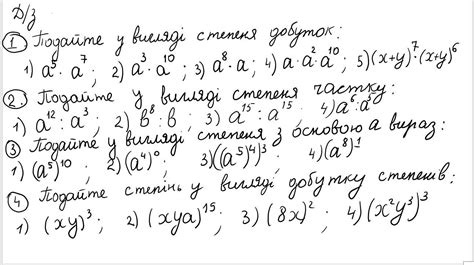 Д/з
① Подайте у вигляді степеня добуток:
1) a⁵ · a⁷; 2) a³ · a¹⁰; 3) a⁸ · a; 4) a · a² · a¹⁰; 5) (x+y)⁷ · (x+y)⁶
② Подайте у вигляді степеня частку:
1) a¹² : a³; 2) b⁸ : b; 3) a¹⁵ : a¹⁵; 4) a⁶ : a⁵
③ Подайте у вигляді степеня з основою a вираз:
1) (a⁵)¹⁰; 2) (a⁴)⁰; 3) ((a⁵)⁴)³; 4) (a⁸)¹
④ Подайте степінь у вигляді добутку степенів:
1) (xy)³; 2) (xya)¹⁵; 3) (8x)²; 4) (x²y³)³